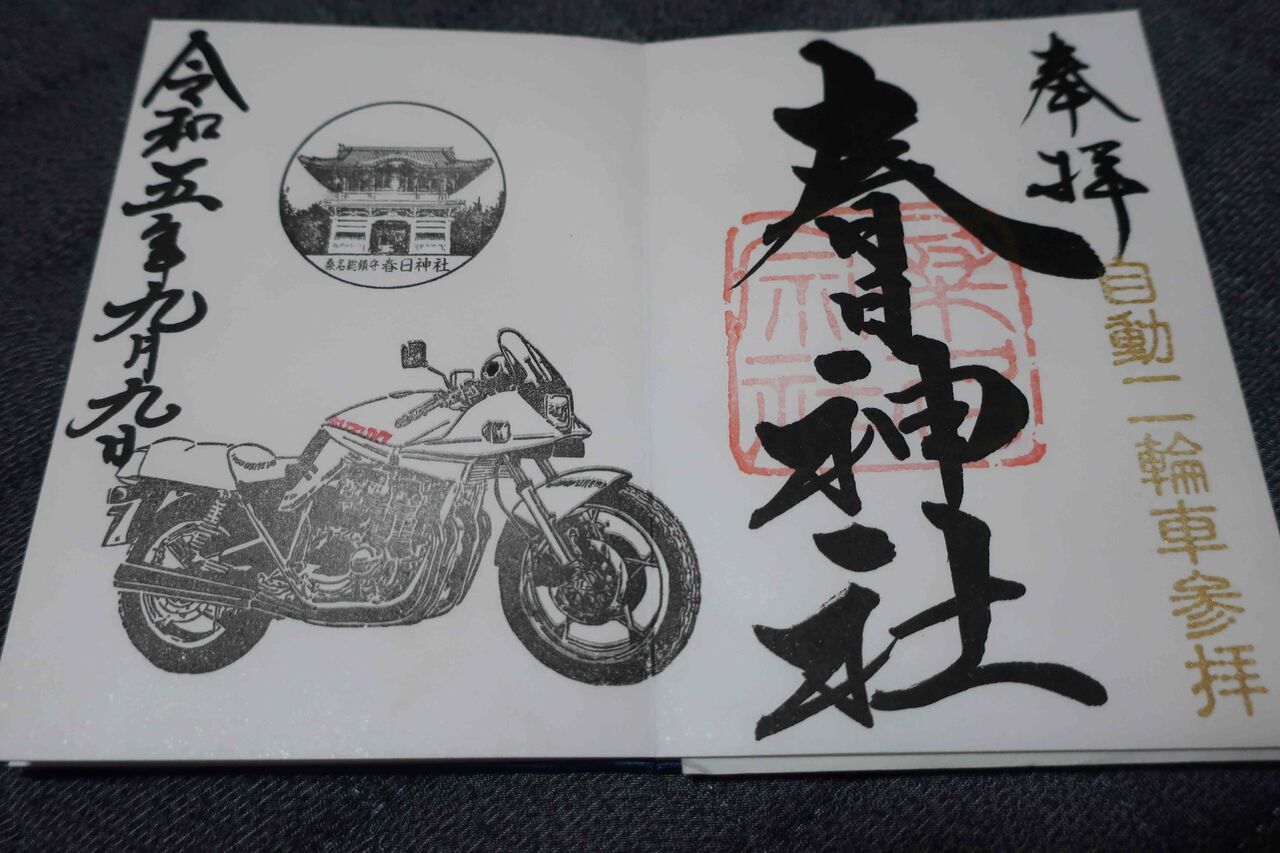 奉拝
自動二輪車参拝
春日神社
桑名総鎮守 春日神社
SUZUKI
令和五年九月九日